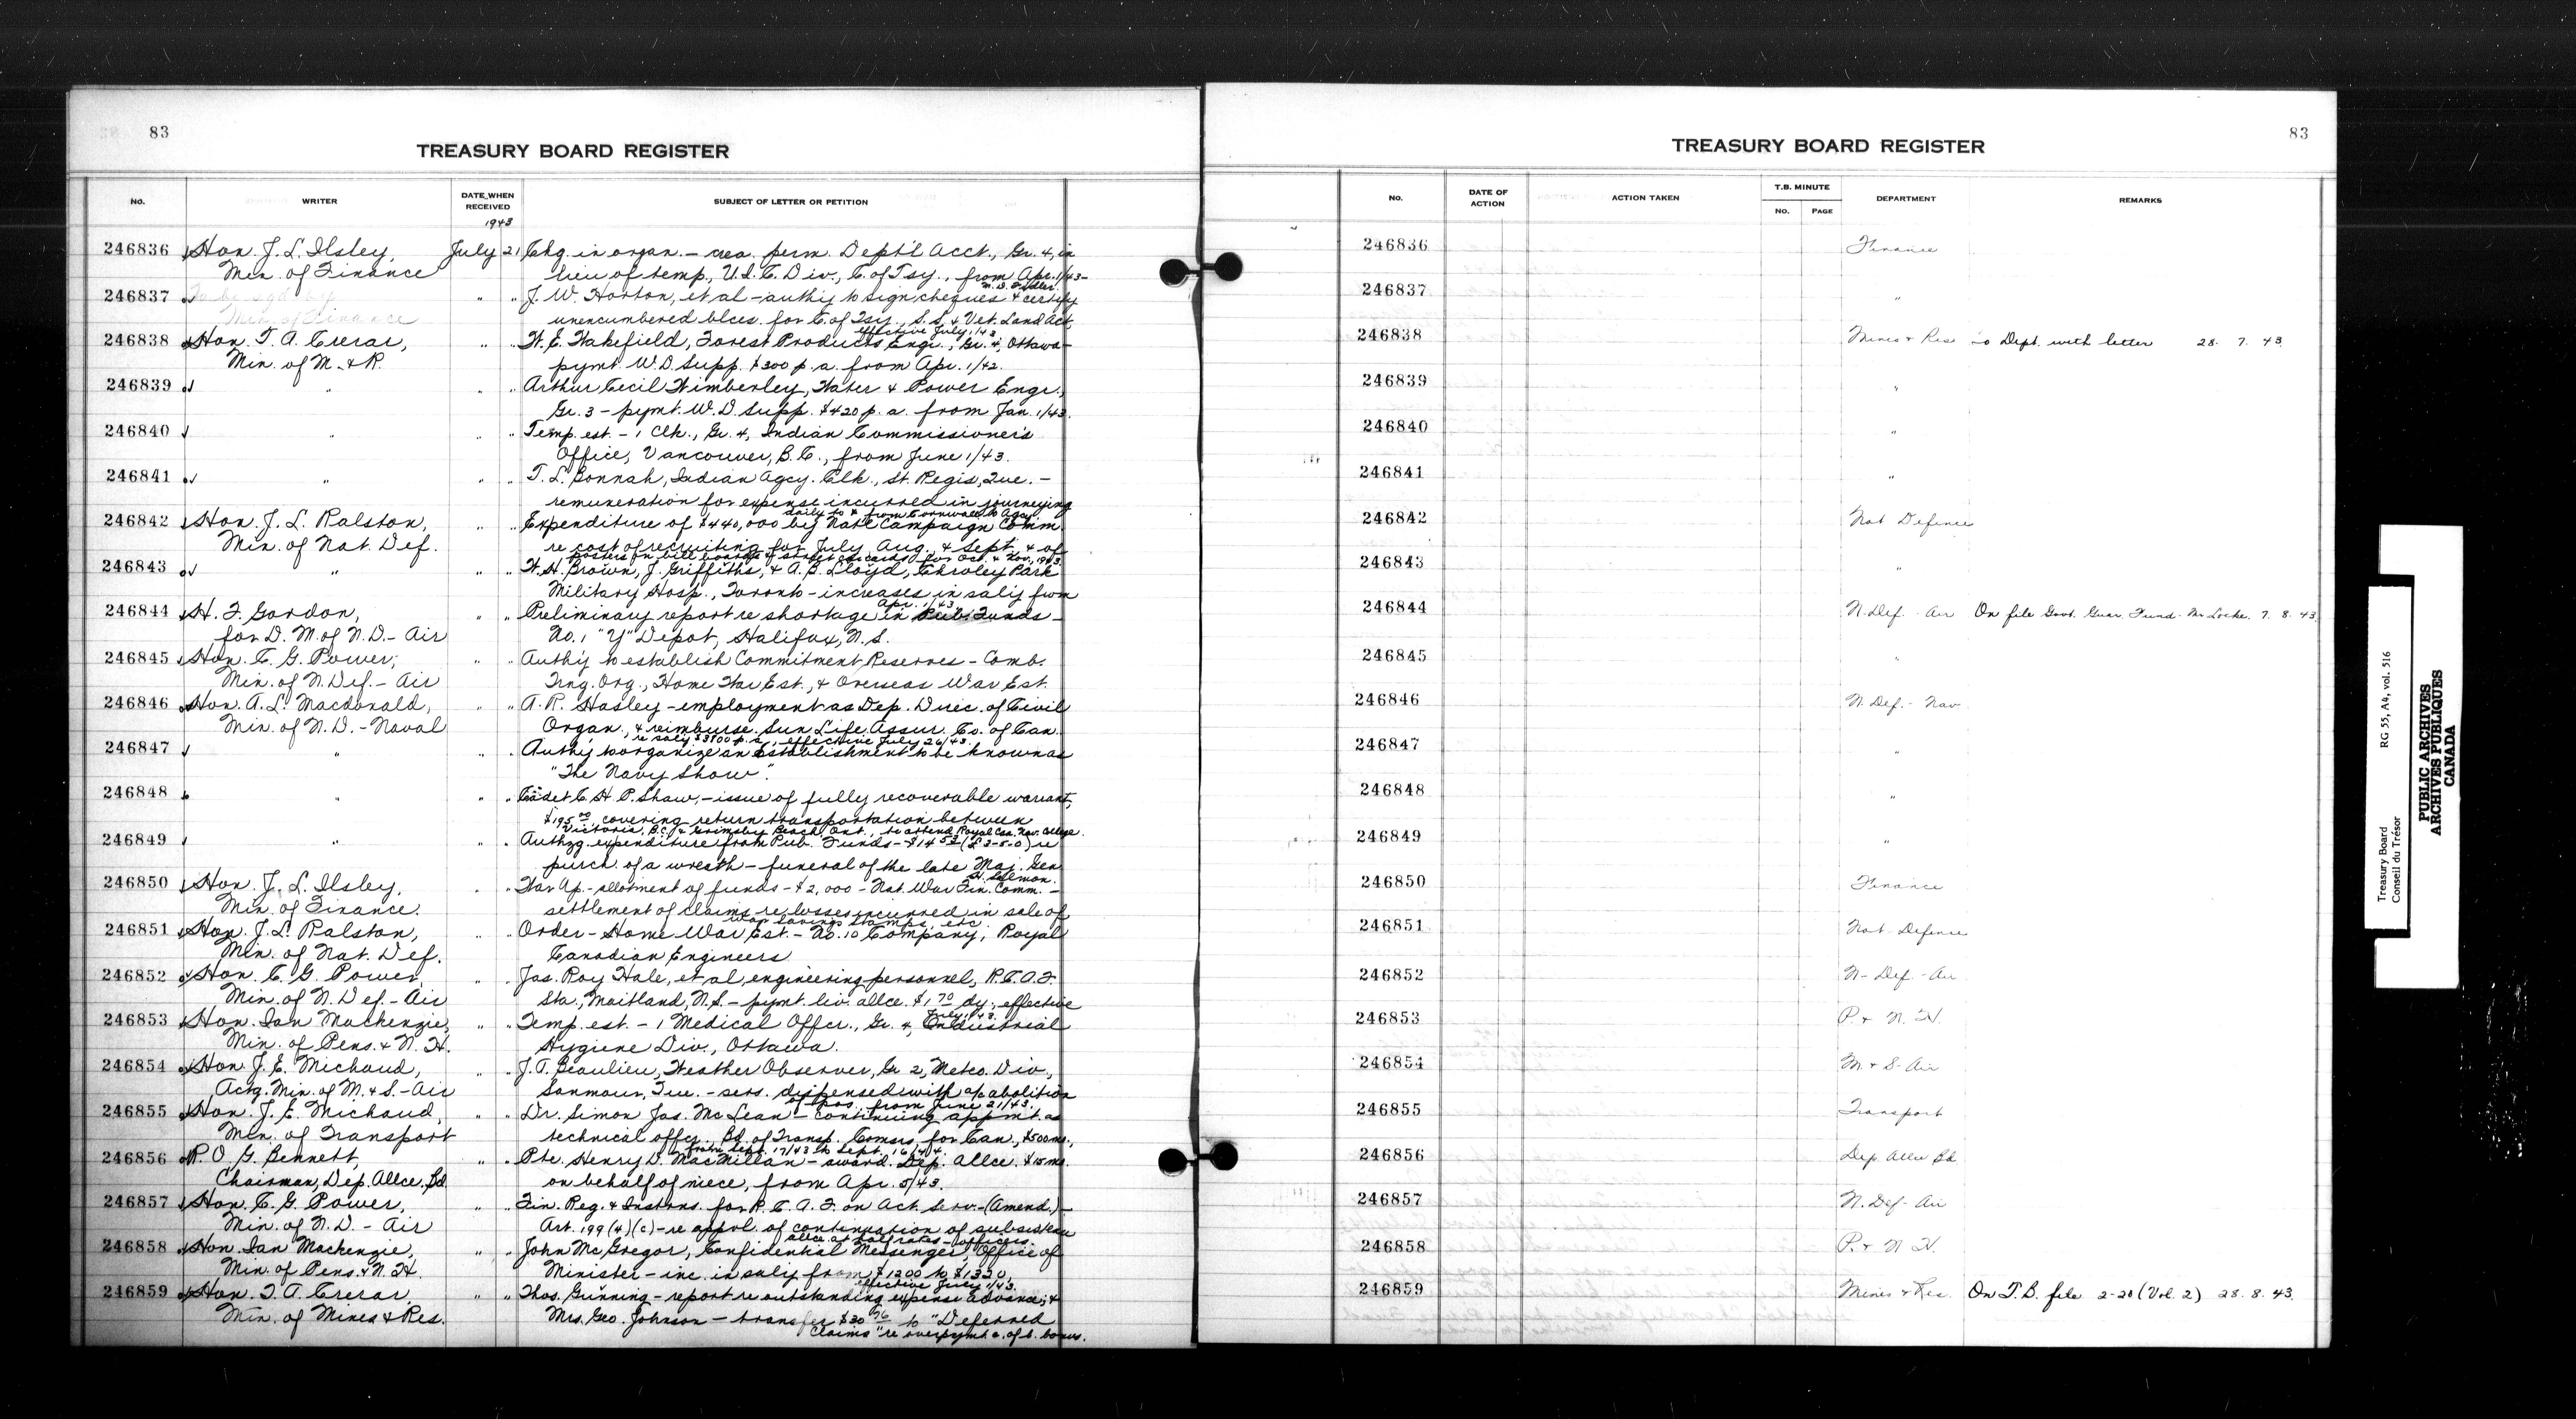 83
TREASURY BOARD REGISTER
No. WRITER DATE WHEN RECEIVED SUBJECT OF LETTER OR PETITION
1943
246836 Hon. J. L. Ilsley, July 21 Chg. in organ. - crea. perm. Dept'l Acct., Gr. 4, in
Min. of Finance lieu of temp., U.I.C. Div., C. of Tsy., from Apr. 1/43-
246837 To be sgd by " " J. W. Horton, et al - auth'y to sign cheques & certify
Min. of Finance unencumbered blces. for C. of Tsy., S.S. & Vet. Land Act,
effective July 1/43
246838 Hon. T. A. Crerar, " " W. E. Wakefield, Forest Products Engr., Gr. 4, Ottawa-
Min. of M. & R. pymt. W.D. Supp. $300 p.a. from Apr. 1/42.
246839 " " " Arthur Cecil Wimberley, Water & Power Engr.,
Gr. 3 - pymt. W.D. Supp. $420 p.a. from Jan. 1/43.
246840 " " " Temp. est. - 1 Clk., Gr. 4, Indian Commissioner's
Office, Vancouver, B.C., from June 1/43.
246841 " " " T. L. Bonnah, Indian Agcy. Clk., St. Regis, Que. -
remuneration for expense incurred in journeying
daily to & from Cornwall to Agcy.
246842 Hon. J. L. Ralston, " " Expenditure of $440,000 by Nat'l Campaign Comm.
Min. of Nat. Def. re cost of recruiting for July, Aug., & Sept., & of
posters on bill boards & street car cards for Oct. & Nov., 1943.
246843 " " " W. H. Brown, J. Griffiths, & A. B. Lloyd, Chroley Park
Military Hosp., Toronto - increases in sal'y from
Apr. 1/43
246844 H. F. Gordon, " " Preliminary report re shortage in Pub. Funds -
for D. M. of N. D. - Air No. 1 "Y" Depot, Halifax, N.S.
246845 Hon. C. G. Power, " " Auth'y to establish Commitment Reserves - Comb.
Min. of N. Def. - Air Trng. Org., Home War Est., & Overseas War Est.
246846 Hon. A. L. Macdonald, " " A. R. Hasley - employment as Dep. Direc. of Civil
Min. of N. D. - Naval Organ., & reimburse. Sun Life Assur. Co. of Can.
re sal'y $3800 p.a., effective July 26/43.
246847 " " " Auth'y to organize an establishment to be known as
"The Navy Show".
246848 " " " Cadet C. H. P. Shaw, - issue of fully recoverable warrant,
$195.00 covering return transportation between
Victoria, B.C. & Grimsby Beach, Ont., to attend Royal Can. Nav. College.
246849 " " " Authzg. expenditure from Pub. Funds - $14.53 (£3-5-0) re
purch. of a wreath - funeral of the late Maj. Gen.
H. Salmon.
246850 Hon. J. L. Ilsley, " " War Ap. - allotment of funds - $2,000 - Nat. War Fin. Comm. -
Min. of Finance. settlement of claims re losses incurred in sale of
war savings stamps, etc.
246851 Hon. J. L. Ralston, " " Order - Home War Est. - No. 10 Company, Royal
Min. of Nat. Def. Canadian Engineers
246852 Hon. C. G. Power, " " Jas. Roy Hale, et al, engineering personnel, R.C.A.F.
Min. of N. Def. - Air Sta., Maitland, N.S. - pymt. liv. allce. $1.70 dy., effective
July 1/43.
246853 Hon. Ian Mackenzie, " " Temp. est. - 1 Medical Offcr., Gr. 4, Industrial
Min. of Pens. & N. H. Hygiene Div., Ottawa.
246854 Hon. J. E. Michaud, " " J. A. Beaulieu, Weather Observer, Gr. 2, Meteo. Div.,
Actg. Min. of M. & S. - Air Sanmaur, Que. - sers. dispensed with a/c abolition
of pos. from June 21/43.
246855 Hon. J. E. Michaud, " " Dr. Simon Jas. McLean - continuing appmt. as
Min. of Transport technical offcr., Bd. of Transp. Comsrs. for Can., $500 mo.,
from Sept. 17/43 to Sept. 16/44.
246856 R. O. G. Bennett, " " Pte. Henry D. MacMillan - award. Dep. Allce. $15 mo.
Chairman, Dep. Allce. Bd. on behalf of niece, from Apr. 5/43.
246857 Hon. C. G. Power, " " Fin. Reg. & Instrns. for R.C.A.F. on Act. Serv. - (Amend.) -
Min. of N. D. - Air Art. 199 (4)(c) - re appvl. of continuation of subsistence
allce. at half rates - officers.
246858 Hon. Ian Mackenzie, " " John McGregor, Confidential Messenger, Office of
Min. of Pens. & N. H. Minister - inc. in sal'y from $1200 to $1320,
effective July 1/43.
246859 Hon. T. A. Crerar, " " Thos. Gunning - report re outstanding expense advance; &
Min. of Mines & Res. Mrs. Geo. Johnson - transfer $30.76 to "Deferred
Claims" re overpymt. c. of l. bonus.
83
TREASURY BOARD REGISTER
No. DATE OF ACTION ACTION TAKEN T.B. MINUTE No. PAGE DEPARTMENT REMARKS
246836 Finance
246837 "
246838 Mines & Res. To Dept. with letter 28. 7. 43.
246839 "
246840 "
246841 "
246842 Nat Defence
246843 "
246844 N. Def. - Air On file Govt. Guar. Fund - Mr Locke. 7. 8. 43.
246845 "
246846 N. Def. - Nav.
246847 "
246848 "
246849 "
246850 Finance
246851 Nat. Defence
246852 N - Def. - Air
246853 P. & N. H.
246854 M. & S. Air
246855 Transport
246856 Dep. Allce Bd
246857 N. Def - Air
246858 P. & N. H.
246859 Mines & Res. On T.B. file 2-20 (Vol. 2) 28. 8. 43.
Treasury Board RG 55, A4, vol. 516
Conseil du Trésor
PUBLIC ARCHIVES
ARCHIVES PUBLIQUES
CANADA